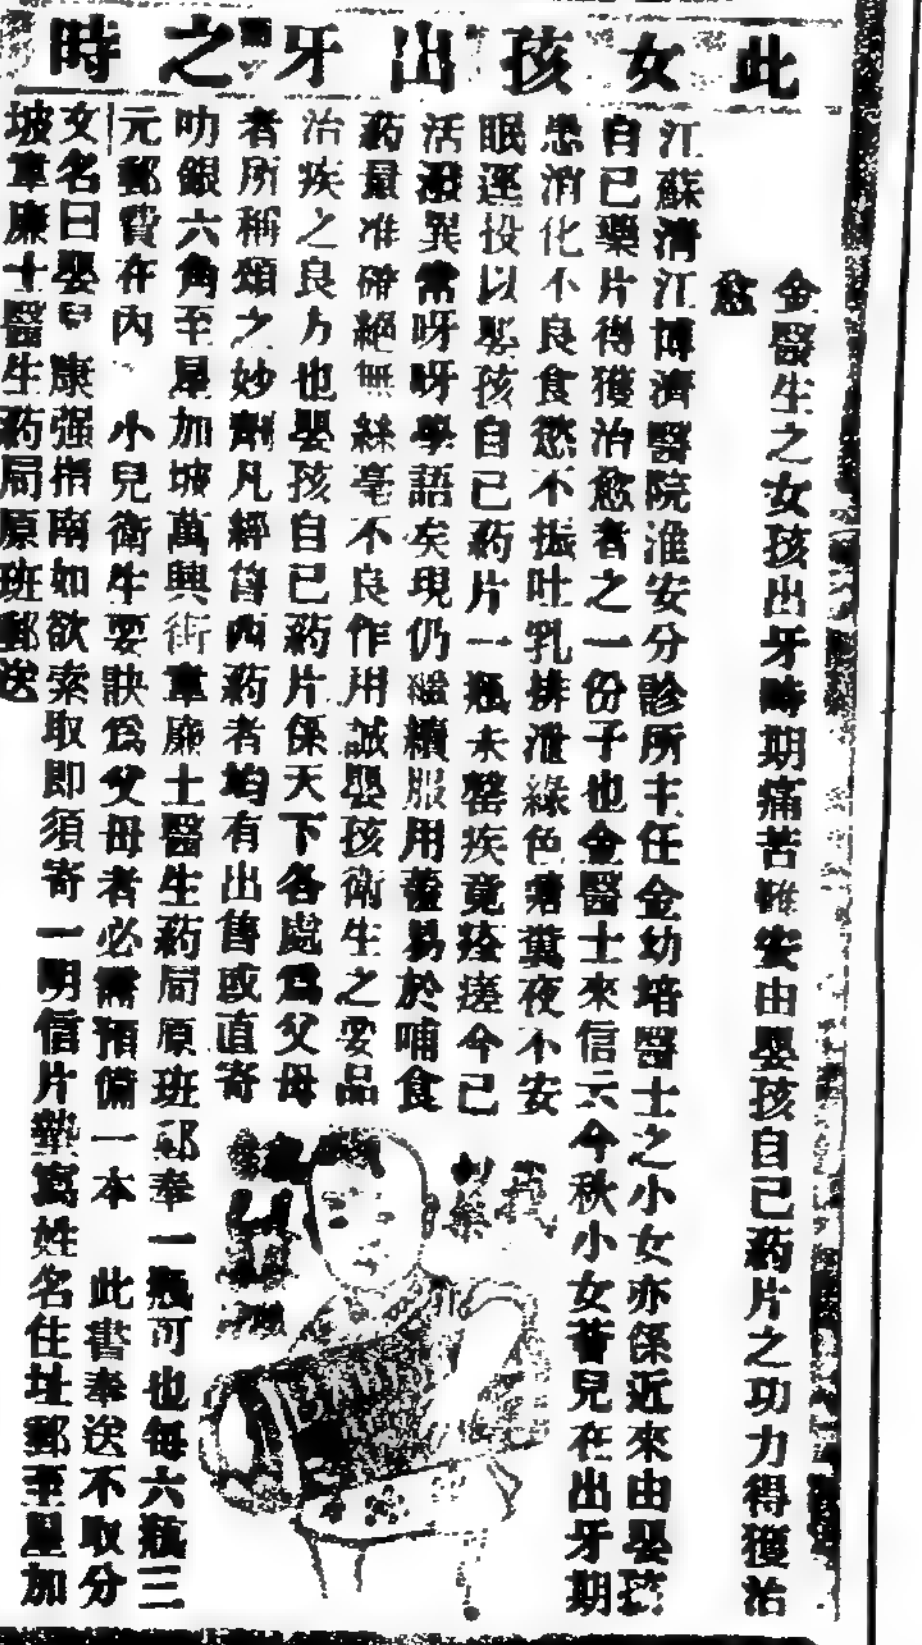 此女孩出牙之時
金醫生之女孩出牙時期痛苦惟安由嬰孩自己葯片之功力得獲治
愈
江蘇清江博濟醫院淮安分診所主任金幼培醫士之小女亦係近來由嬰孩
自已藥片得獲治愈者之一份子也金醫士來信云今秋小女普兒在出牙期
患消化不良食慾不振吐乳排泄綠色糖糞夜不安
眠逐投以嬰孩自己葯片一瓶未罄疾竟痊瘥今已
活潑異常呀呀學語矣現仍繼續服用蓋易於哺食
葯量准確絕無絲毫不良作用誠嬰孩衛生之要品
治疾之良方也嬰孩自已葯片係天下各處為父母
者所稱頌之妙劑凡經售西葯者均有出售或直寄
叻銀六角至星加坡萬興街韋廉士醫生葯局原班郵奉一瓶可也每六瓶三
元郵費在內 小兒衛生要訣為父母者必需預備一本 此書奉送不取分
文名曰嬰兒康强指南如欲索取即須寄一明信片墊寫姓名住址郵至星加
坡韋廉士醫生葯局原班郵送